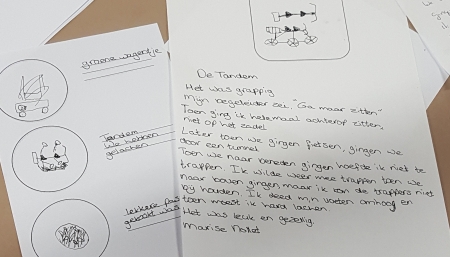 groene wagentje
Tandem
We hebben
gelachen
lekkere
gekookt was
De Tandem
Het was grappig
Mijn begeleider zei: "Ga maar zitten"
Toen ging ik helemaal achterop zitten,
niet op het zadel.
Later toen we gingen fietsen, gingen we
door een tunnel.
Toen we naar beneden gingen hoefde ik niet te
trappen. Ik wilde weer mee trappen toen we
naar boven gingen maar ik kon de trappers niet
bij houden. Ik deed mijn voeten omhoog en
toen moest ik hard lachen.
Het was leuk en gezellig.
Marise